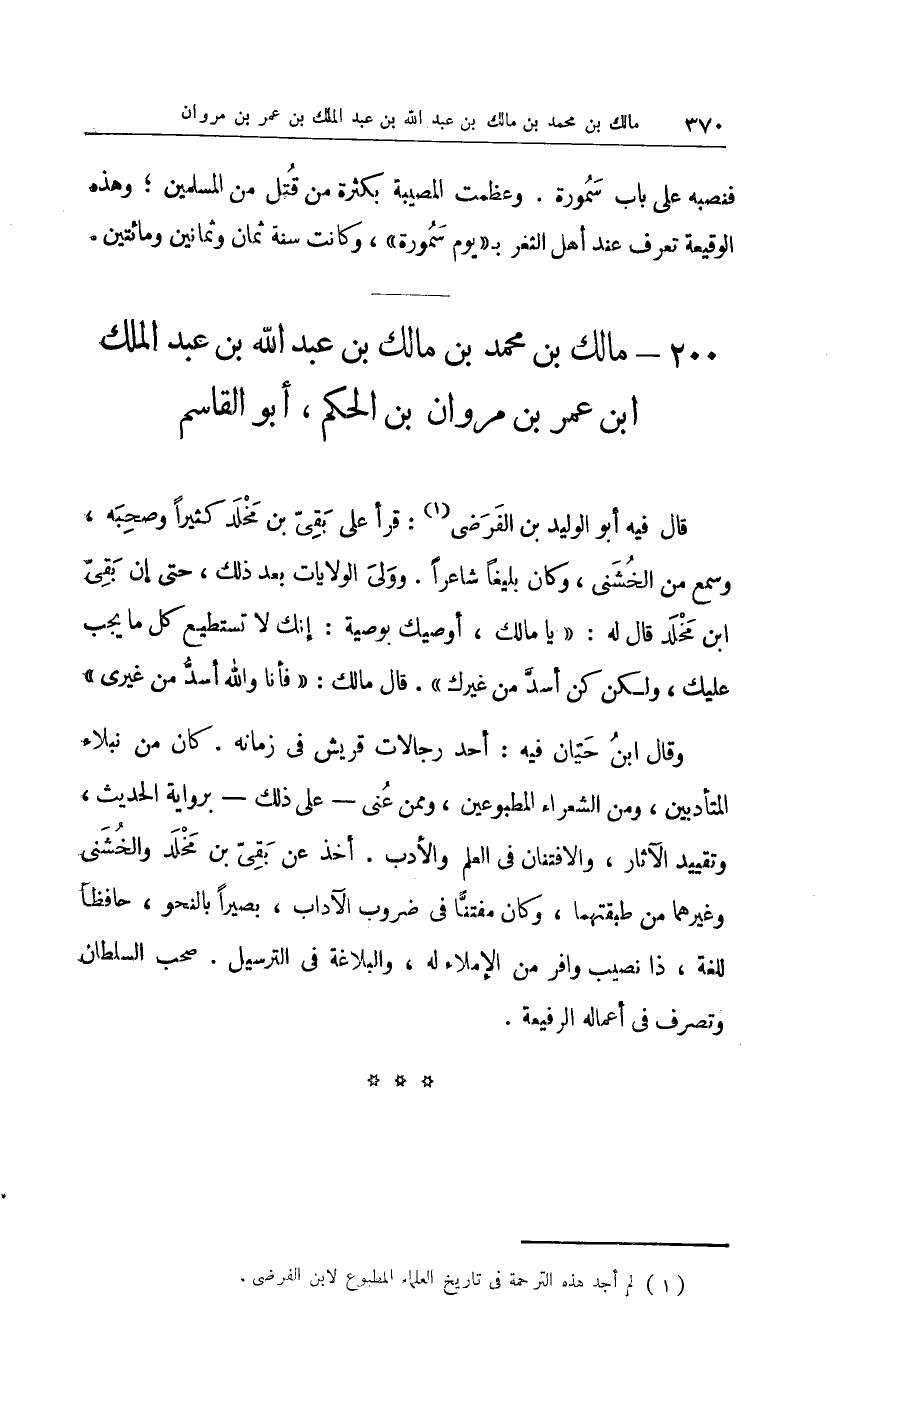 ٣٧٠ مالك بن محمد بن مالك بن عبد الله بن عبد الملك بن عمر بن مروان
فنصبه على باب سَمُّورة . وعظمت المصيبة بكثرة من قُتل من المسلمين ؛ وهذه
الوقيعة تعرف عند أهل الثغر بـ«يوم سَمُّورة» ، وكانت سنة ثمان وثمانين ومائتين .
٢٠٠ – مالك بن محمد بن مالك بن عبد الله بن عبد الملك
ابن عمر بن مروان بن الحكم ، أبو القاسم
قال فيه أبو الوليد بن الفَرَضى(١) : قرأ على بَقِىّ بن مَخْلَد كثيراً وصحِبَه ،
وسمع من الخُشَنى ، وكان بليغاً شاعراً . ووَلىَ الولايات بعد ذلك ، حتى إن بَقِىّ
ابن مَخْلَد قال له : « يا مالك ، أوصيك بوصية : إنك لا تستطيع كل ما يجب
عليك ، ولكن كن أسدَّ من غيرك» . قال مالك : « فأنا والله أسدُّ من غيرى »
وقال ابنُ حَيّان فيه : أحد رجالات قريش فى زمانه . كان من نبلاء
المتأدبين ، ومن الشعراء المطبوعين ، وممن عُنى – على ذلك – برواية الحديث ،
وتقييد الآثار ، والافتنان فى العلم والأدب . أخذ عن بَقِىّ بن مَخْلَد والخُشَنى
وغيرهما من طبقتهما ، وكان مفتنًّا فى ضروب الآداب ، بصيراً بالنحو ، حافظاً
للغة ، ذا نصيب وافر من الإملاء له ، والبلاغة فى الترسيل . صحب السلطان
وتصرف فى أعماله الرفيعة .
* * *
(١) لم أجد هذه الترجمة فى تاريخ العلماء المطبوع لابن الفرضى .